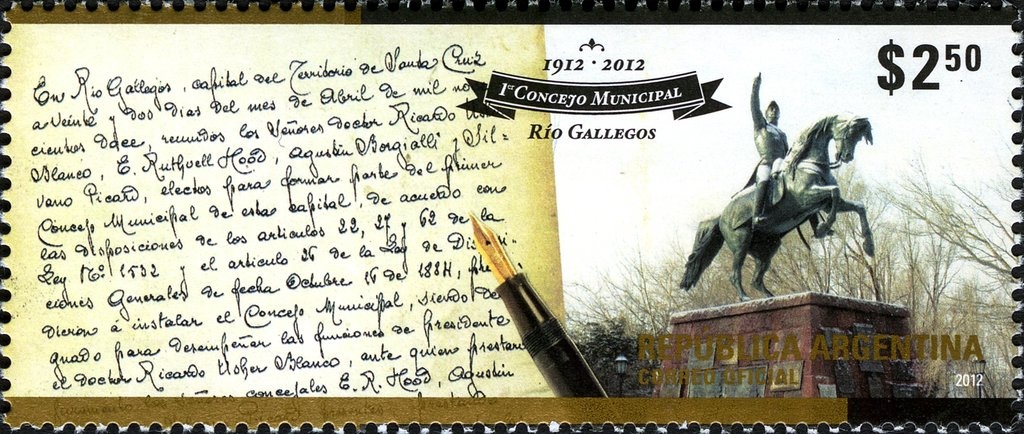 En Río Gallegos, capital del Territorio de Santa Cruz
a veinte y dos días del mes de Abril de mil no
cientos doce, reunidos los Señores doctor Ricardo
Blanco, E. Ruthvell Hood, Agustín Borgialli y Sil-
vano Picard, electos para formar parte del primer
Concejo Municipal de esta capital, de acuerdo con
las disposiciones de los articulos 22, 27 y 62 de la
Ley Nº 1532 y el articulo 26 de la Ley de
ciones Generales de fecha Octubre 16 de 1884,
dieron á instalar el Concejo Municipal, siendo de
gnado para desempeñar las funciones de presidente
el doctor Ricardo Usher Blanco, ante quien prestaron
concejales E. R. Hood, Agustín
1912 · 2012
1er CONCEJO MUNICIPAL
RÍO GALLEGOS
$2 50
REPÚBLICA ARGENTINA
CORREO OFICIAL
2012